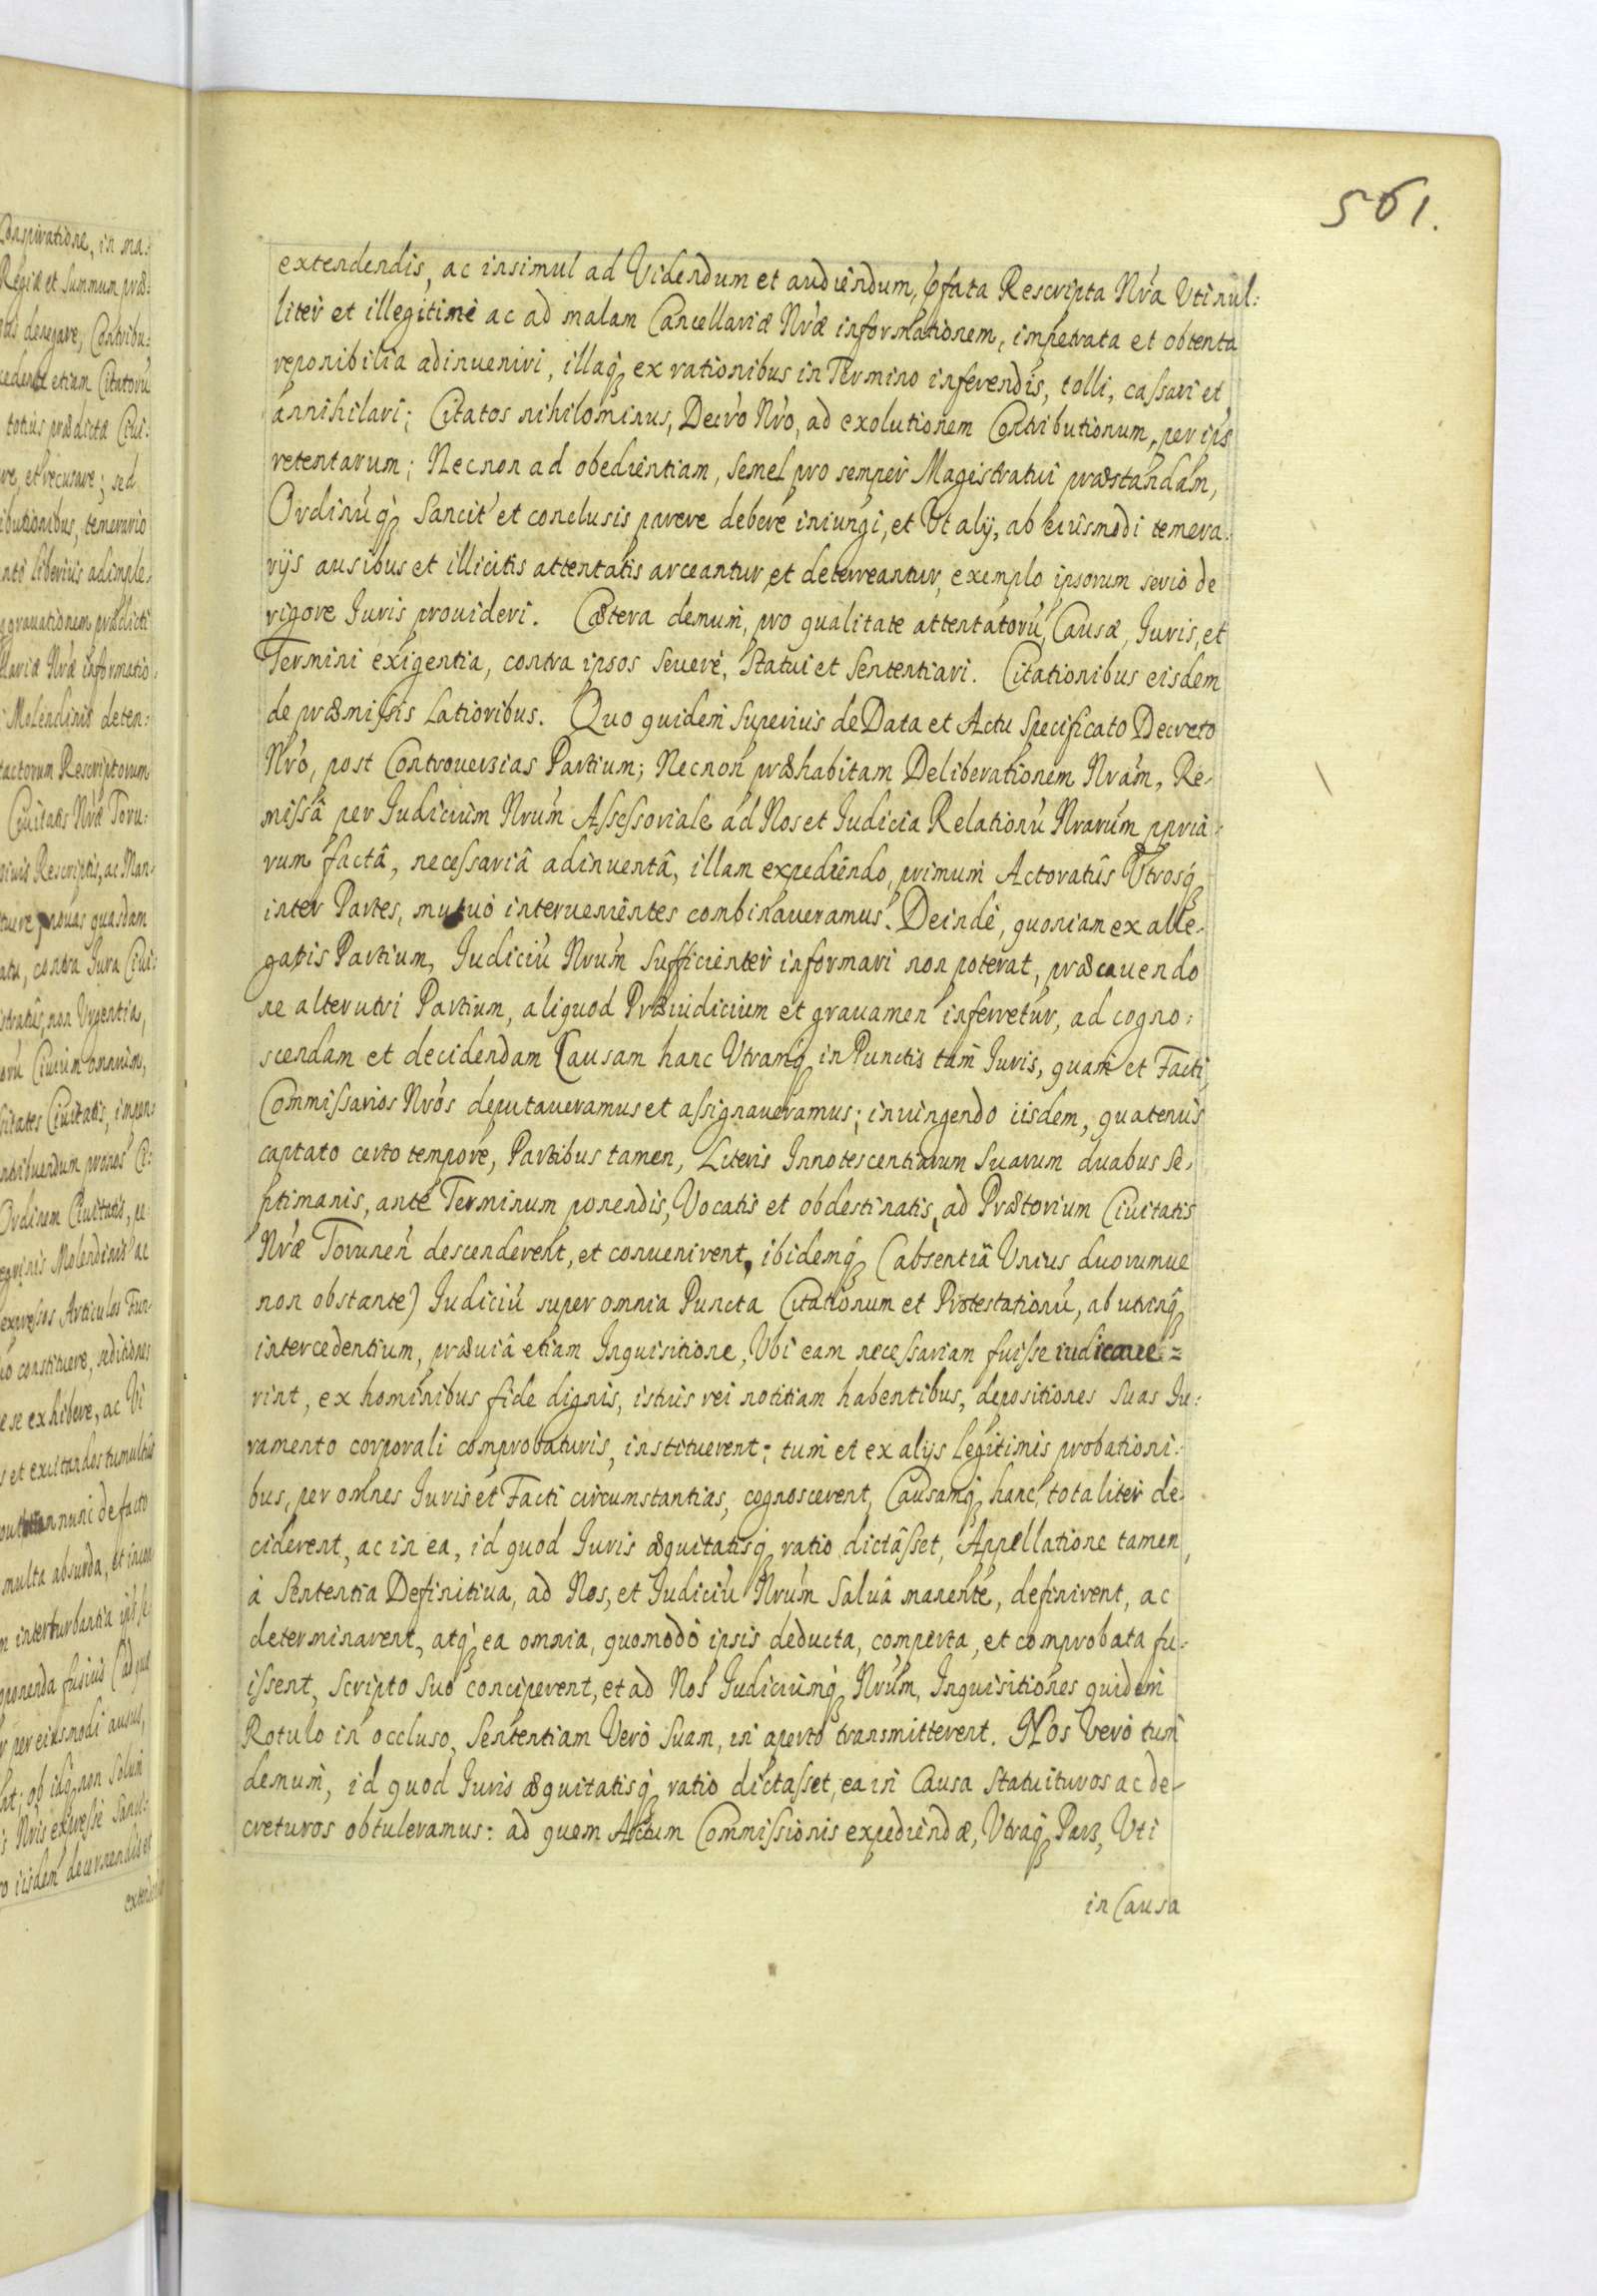 561.
extendendis, ac insimul ad Videndum et audiendum, pfata Rescripta Nra Uti nul:
liter et illegitime ac ad malam Cancellariæ Nræ informationem, impetrata et obtenta
reponibilia adinveniri, illaq; ex rationibus in Termino inferendis, tolli, cassari et
annihilari; Citatos nihilominus, Decro Nro, ad exolutionem Contributionum, per ips
retentarum; Necnon ad obedientiam, semel pro semper Magistratui præstandam,
Ordinuq; Sancit et conclusis parere debere iniungi, et Ut alÿ, ab eiusmodi temera:
rÿs ausibus et illicitis attentatis arceantur et deterreantur, exemplo ipsorum serio de
rigore Iuris provideri. Cætera demum, pro qualitate attentatorũ, Causæ, Iuris, et
Termini exigentia, contra ipsos severè, statui et sententiari. Citationibus eisdem
de præmissis Latioribus. Quo quidem superius de Data et Actu specificato Decreto
Nro, post Controuersias Partium; Necnon præhabitam Deliberationem Nram, Re-
missâ per Iudicium Nrum Assessoriale ad Nos et Iudicia Relationũ Nrarum ppria:
rum factâ, necessariâ adinventâ, illam expediendo, primum Actoratûs Utrosq;
inter Partes, mutuò intervenientes combinaveramus. Deindè, quoniam ex alle-
gatis Partium, Iudiciũ Nrum Sufficienter informari non poterat, præcauendo
ne alterutri Partium, aliquod Præiudicium et gravamen inferretur, ad cogno:
scendam et decidendam Causam hanc Utramq; in Punctis tam Iuris, quam et Facti
Commissarios Nros deputaveramus et assignaveramus; iniungendo iisdem, quatenus
captato certo tempore, Partibus tamen, Literis Innotescentiarum Suarum duabus Se-
ptimanis, ante Terminum ponendis, Vocatis et obdestinatis, ad Prætorium Civitatis
Nræ Torunen descenderent, et convenirent, ibidemq; (absentiâ Unius duorumue
non obstante) Iudiciũ super omnia Puncta Citationum et Protestationũ, ab utrinq;
intercedentium, præviâ etiam Inquisitione, Ubi eam necessariam fuisse iudicaue=
rint, ex hominibus fide dignis, istius rei notitiam habentibus, depositiones suas Iu:
ramento corporali comprobaturis, instituerent; tum et ex alÿs legitimis probationi:
bus, per omnes Iuris et Facti circumstantias, cognoscerent, Causamq; hanc, totaliter de:
ciderent, ac in ea, id quod Iuris æquitatisq; ratio dictâsset, Appellatione tamen,
à Sententia Definitiva, ad Nos, et Iudiciũ Nrum salvâ manente, definirent, ac
determinarent, atq; ea omnia, quomodò ipsis deducta, comperta, et comprobata fu:
issent, Scripto suo conciperent, et ad Nos Iudiciumq; Nrum, Inquisitiones quidem
Rotulo in occluso, Sententiam Verò Suam, in aperto transmitterent. Nos verò tum
demum, id quod Iuris æquitatisq; ratio dictasset, ea in Causa statuituros ac de-
creturos obtuleramus: ad quem Actum Commissionis expediendæ, Utraq; Pars, Uti
in Causa